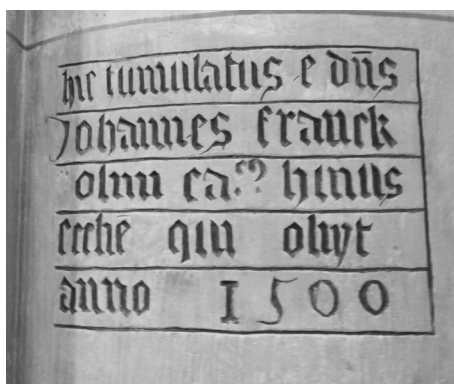 hic tumulatus e dn̄s
Johannes franck
olim ca^cus huius
eccliē qui obyt
anno 1500